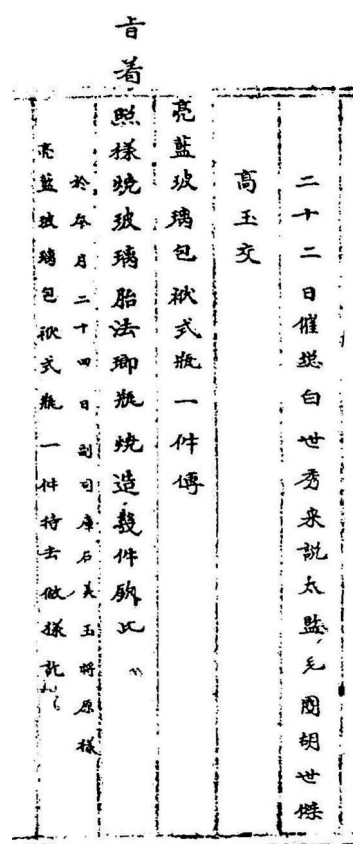 二十二日催總白世秀來說太監毛團胡世傑
高玉交
亮藍玻璃包袱式瓶一件傳
旨着照樣燒玻璃胎法瑯瓶燒造幾件欽此
於本月二十四日副司庫石美玉將原樣
亮藍玻璃包袱式瓶一件持去做樣訖